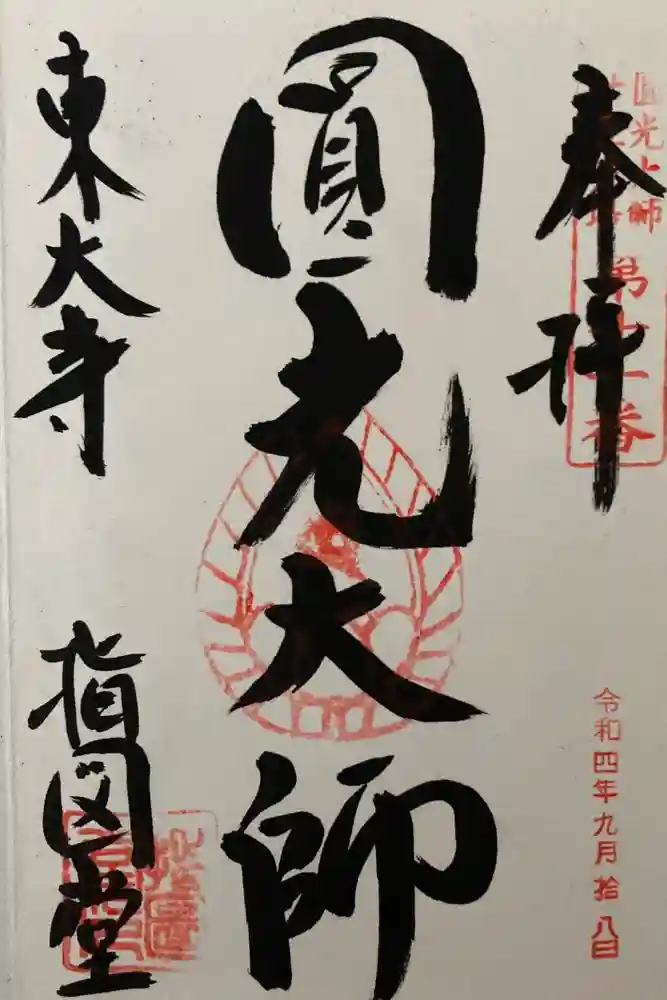 奉拝
圓光大師
第十一番
令和四年九月拾八日
圓光大師
東大寺
指図堂